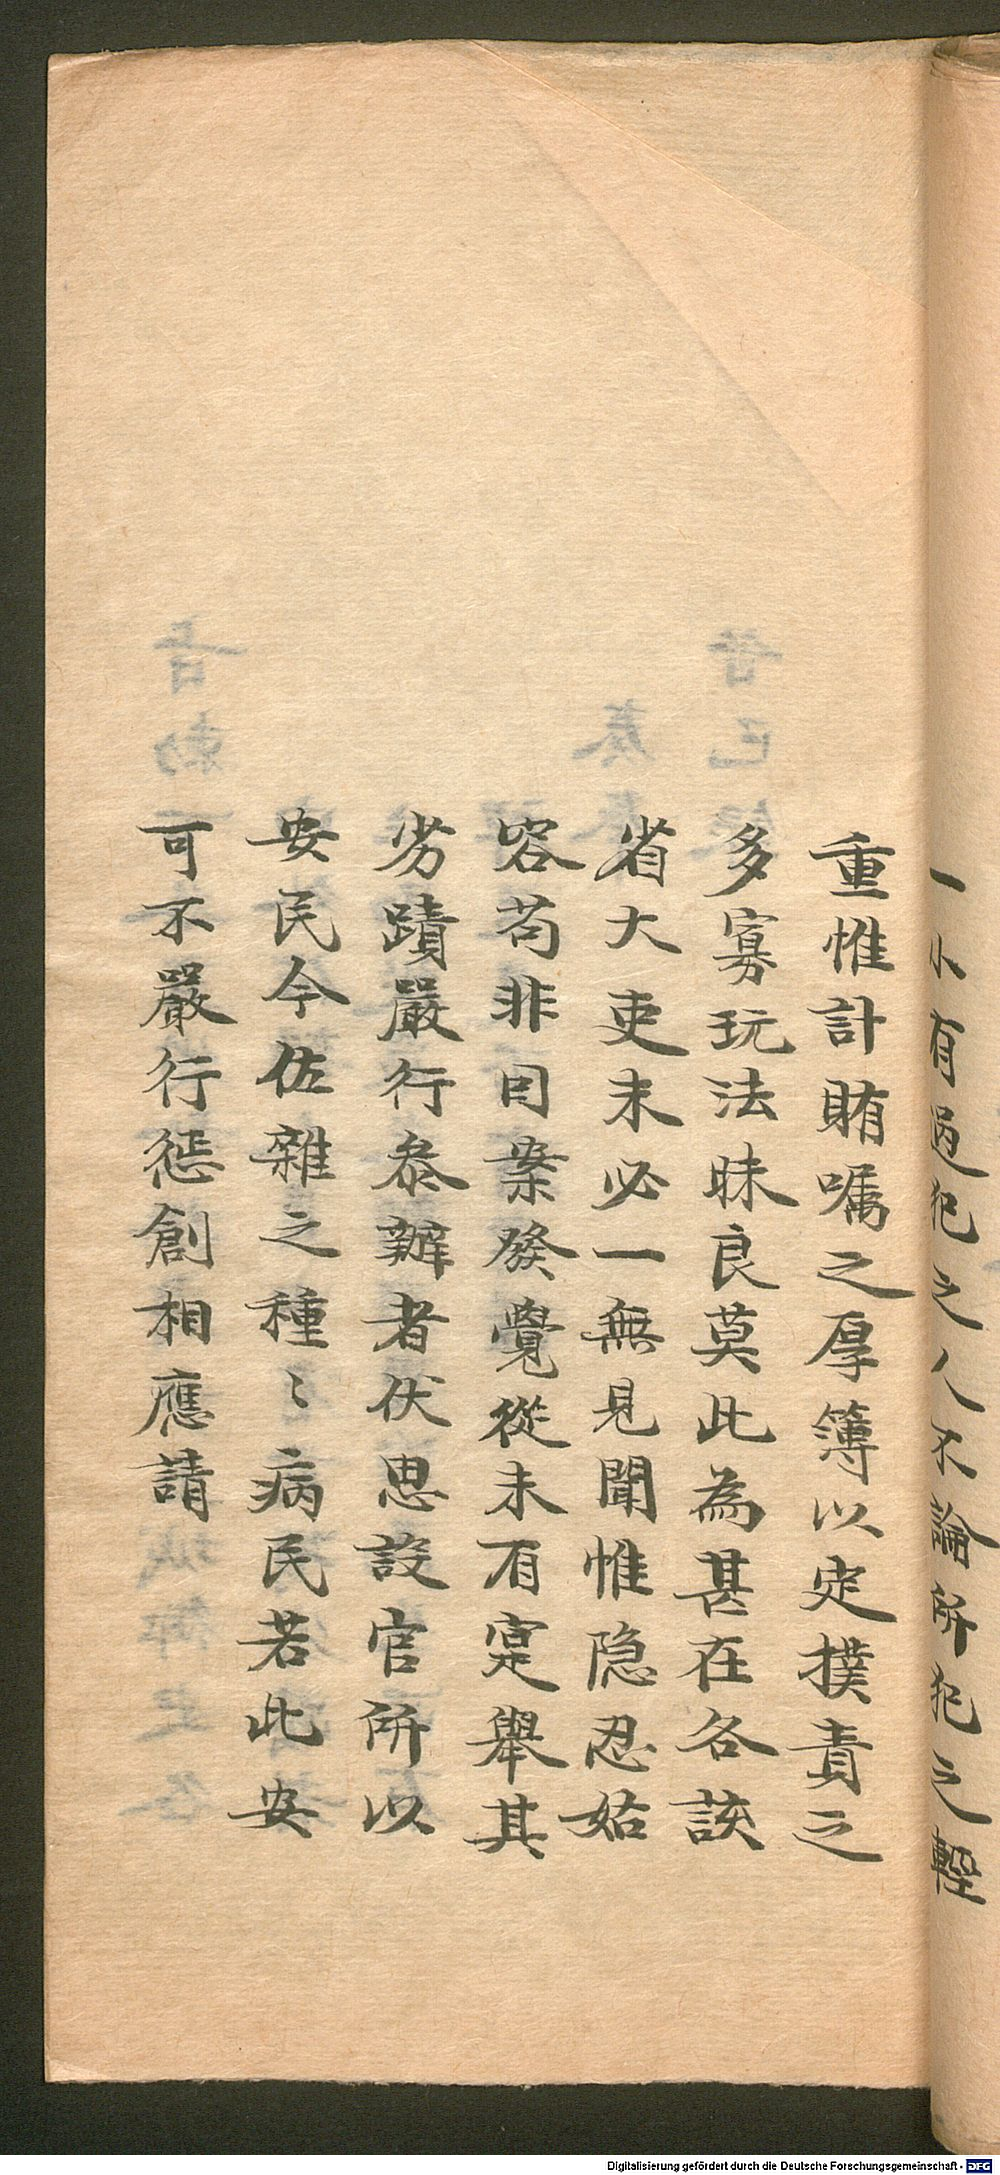 一小有過犯之人不論所犯之輕
重惟計賄囑之厚簿以定撲責之
多寡玩法昧良莫此為甚在各該
省大吏未必一無見聞惟隐忍姑
容苟非因案發覺從未有寔舉其
劣蹟嚴行叅辦者伏思設官所以
安民今佐雜之種〻病民若此安
可不嚴行懲創相應請
Digitalisierung gefördert durch die Deutsche Forschungsgemeinschaft - DFG